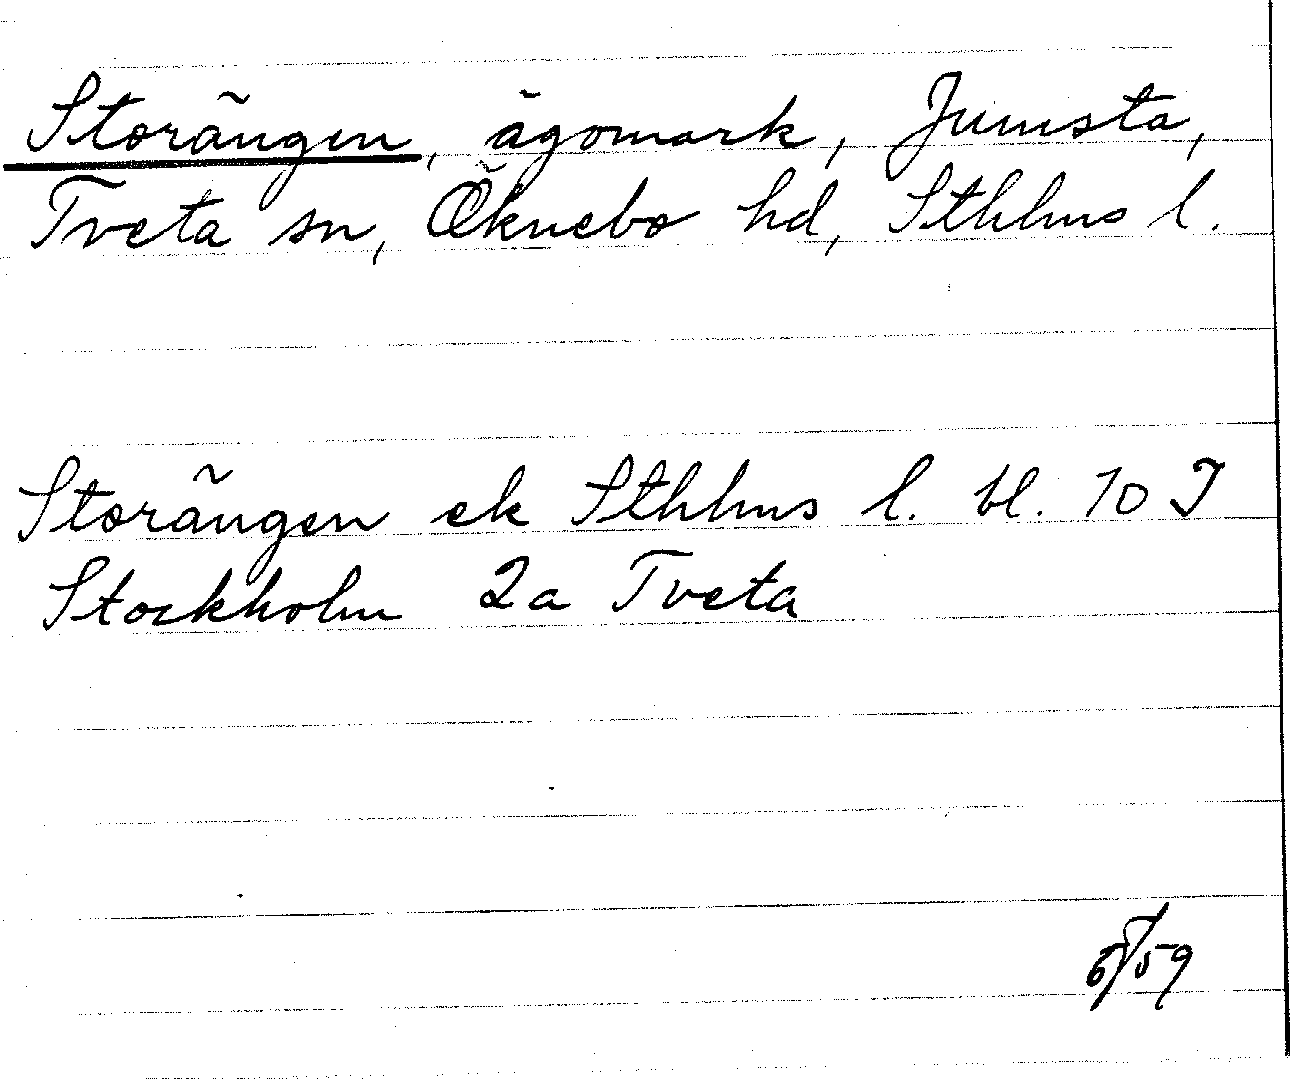 Storängen, ägomark, Jumsta,
Tveta sn, Öknebo hd, Sthlms l.
Storängen ek Sthlms l. bl. 10 I
Stockholm 2a Tveta
/59